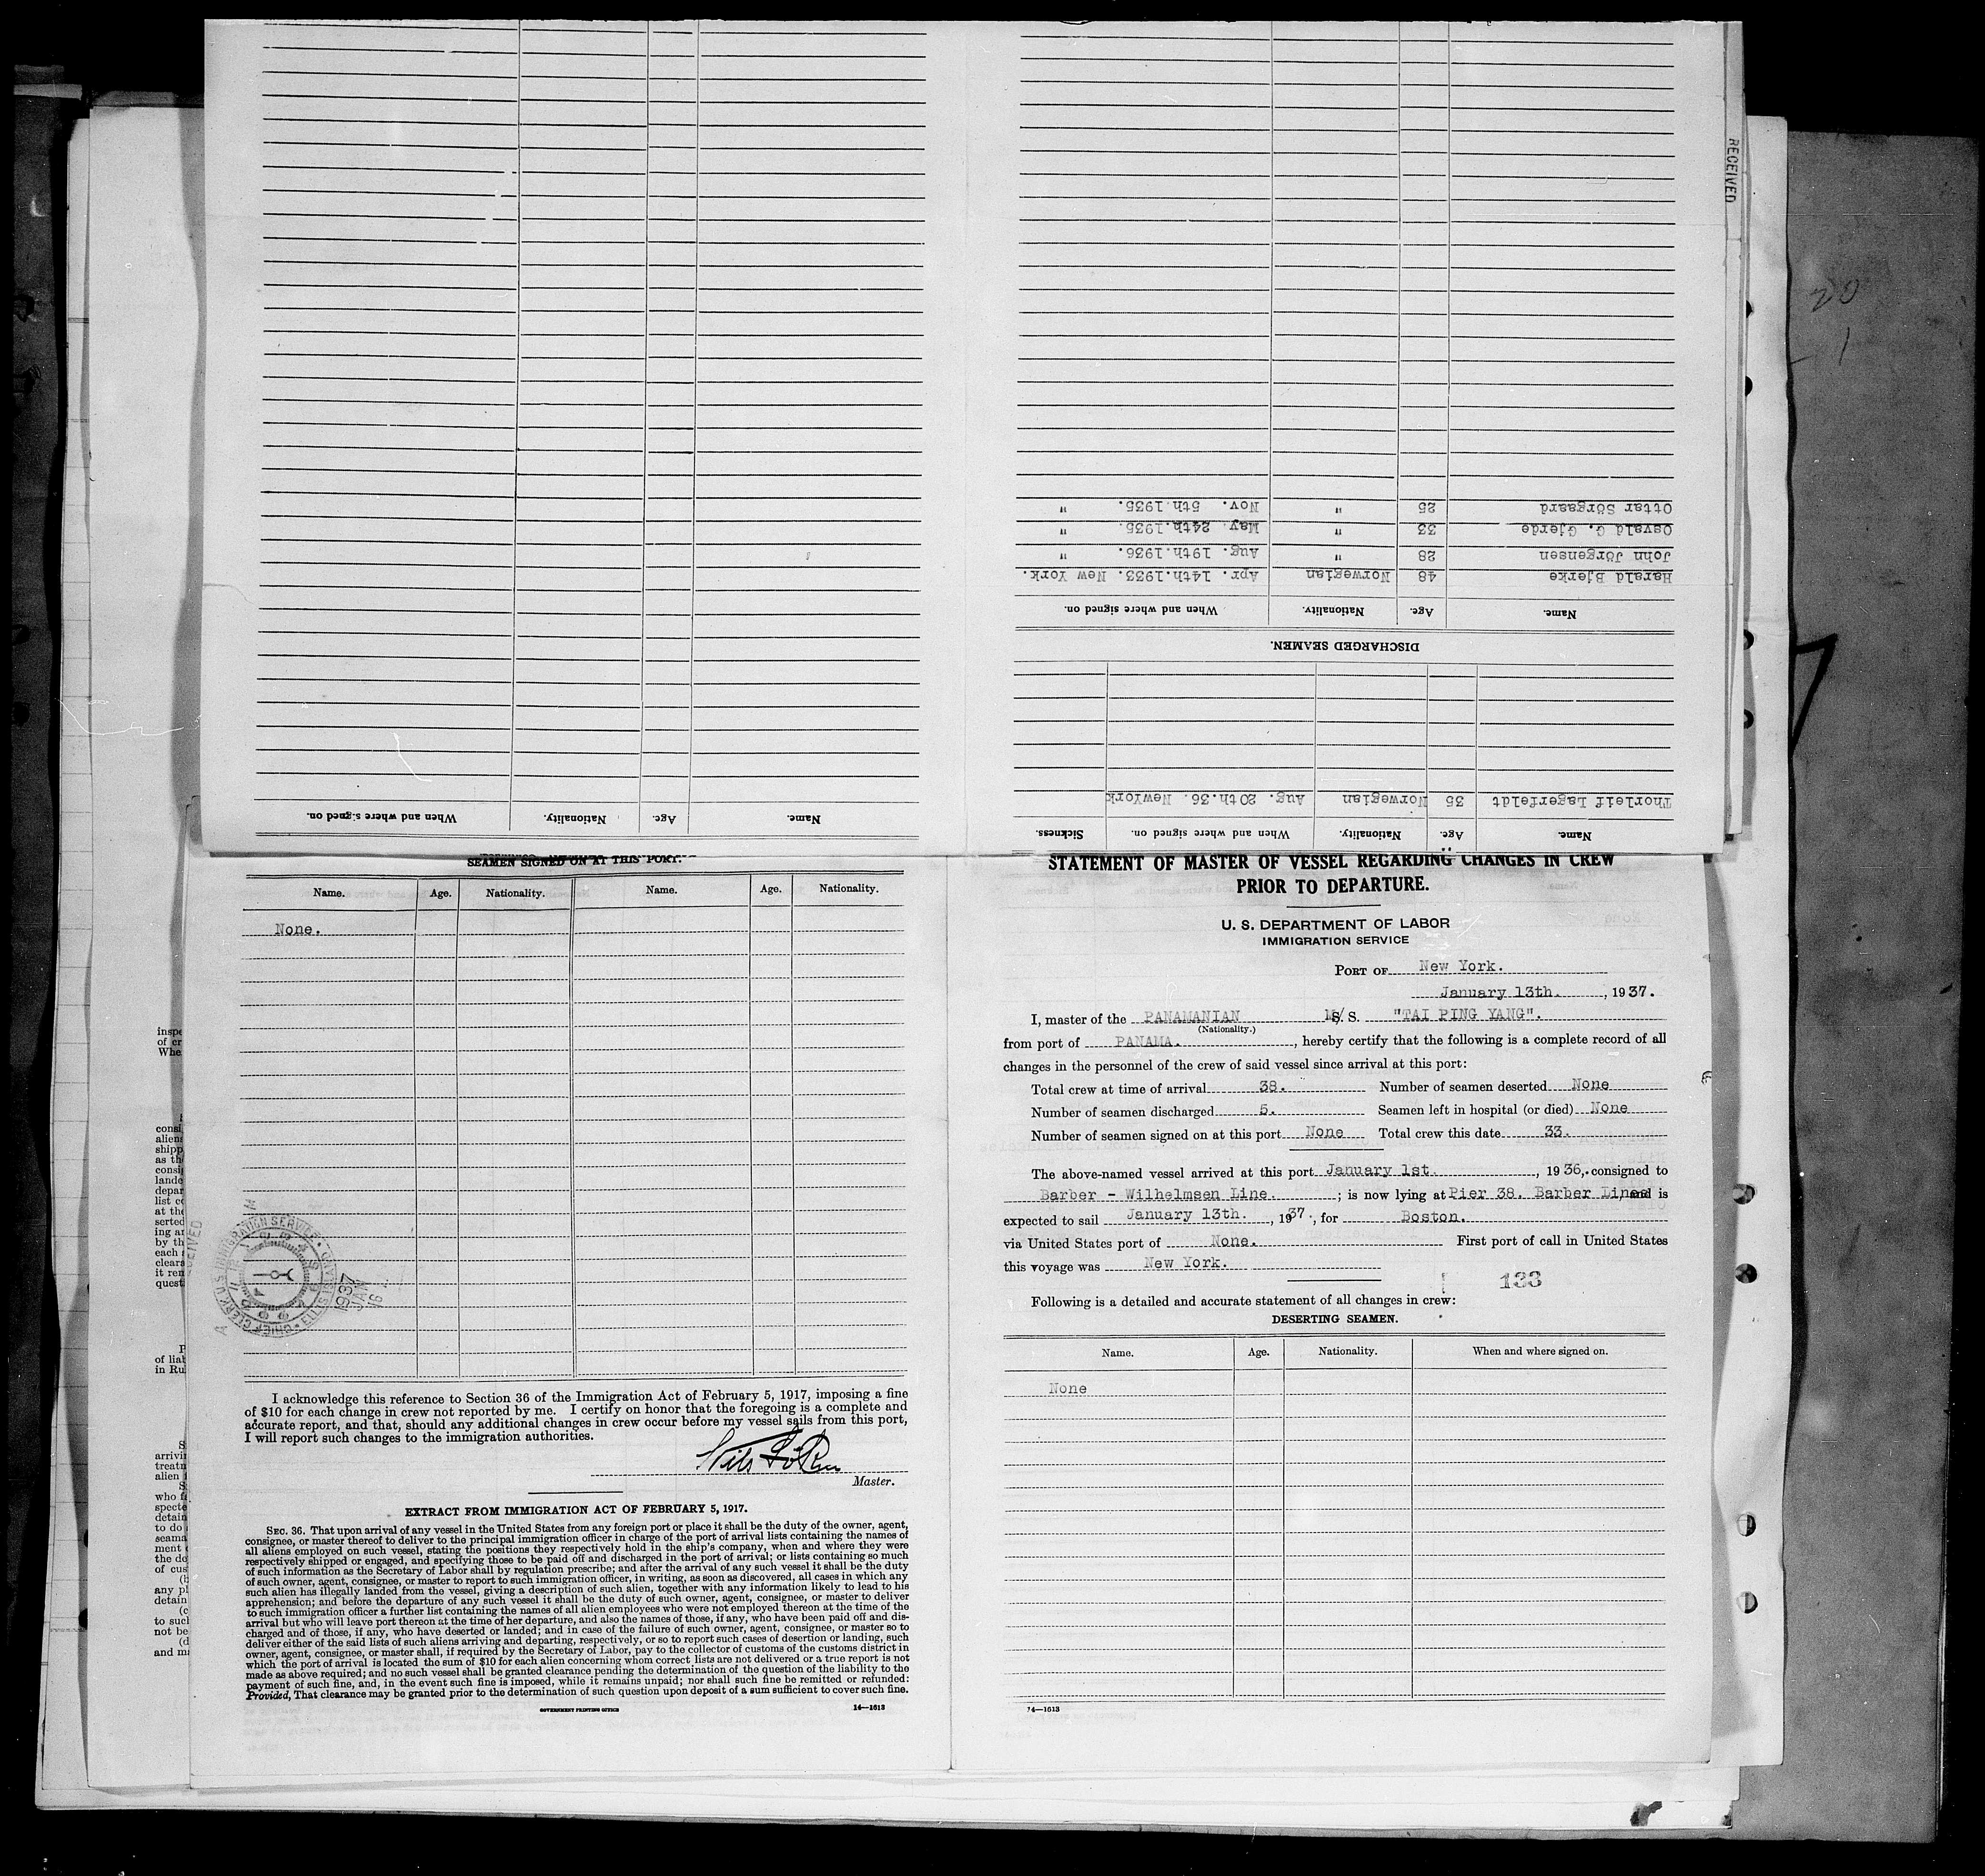 RECEIVED
Name. Age. Nationality. When and where signed on. Sickness.
Thorleif Lagerfeldt 35 Norwegian Aug. 20th.36. NewYork
DISCHARGED SEAMEN.
Name. Age. Nationality. When and where signed on.
Harald Bjerke 48 Norwegian Apr. 14th.1933. New York.
John Jörgensen 28 " Aug. 19th.1936. "
Osvald G. Gjerde 33 " May. 24th.1935. "
Ottar Sörgaard 25 " Nov. 5th.1935. "
Name. Age. Nationality. When and where signed on.
SEAMEN SIGNED ON AT THIS PORT.
Name. Age. Nationality. Name. Age. Nationality.
None.
CHIEF CLERK, U.S. IMMIGRATION SERVICE
ELLIS ISLAND
1937
JAN
16
I acknowledge this reference to Section 36 of the Immigration Act of February 5, 1917, imposing a fine
of $10 for each change in crew not reported by me. I certify on honor that the foregoing is a complete and
accurate report, and that, should any additional changes in crew occur before my vessel sails from this port,
I will report such changes to the immigration authorities.
Nils
Master.
EXTRACT FROM IMMIGRATION ACT OF FEBRUARY 5, 1917.
SEC. 36. That upon arrival of any vessel in the United States from any foreign port or place it shall be the duty of the owner, agent,
consignee, or master thereof to deliver to the principal immigration officer in charge of the port of arrival lists containing the names of
all aliens employed on such vessel, stating the positions they respectively hold in the ship's company, when and where they were
respectively shipped or engaged, and specifying those to be paid off and discharged in the port of arrival; or lists containing so much
of such information as the Secretary of Labor shall by regulation prescribe; and after the arrival of any such vessel it shall be the duty
of such owner, agent, consignee, or master to report to such immigration officer, in writing, as soon as discovered, all cases in which any
such alien has illegally landed from the vessel, giving a description of such alien, together with any information likely to lead to his
apprehension; and before the departure of any such vessel it shall be the duty of such owner, agent, consignee, or master to deliver
to such immigration officer a further list containing the names of all alien employees who were not employed thereon at the time of the
arrival but who will leave port thereon at the time of her departure, and also the names of those, if any, who have been paid off and dis-
charged and of those, if any, who have deserted or landed; and in case of the failure of such owner, agent, consignee, or master so to
deliver either of the said lists of such aliens arriving and departing, respectively, or so to report such cases of desertion or landing, such
owner, agent, consignee, or master shall, if required by the Secretary of Labor, pay to the collector of customs of the customs district in
which the port of arrival is located the sum of $10 for each alien concerning whom correct lists are not delivered or a true report is not
made as above required; and no such vessel shall be granted clearance pending the determination of the question of the liability to the
payment of such fine, and, in the event such fine is imposed, while it remains unpaid; nor shall such fine be remitted or refunded:
Provided, That clearance may be granted prior to the determination of such question upon deposit of a sum sufficient to cover such fine.
GOVERNMENT PRINTING OFFICE 14—1613
STATEMENT OF MASTER OF VESSEL REGARDING CHANGES IN CREW
PRIOR TO DEPARTURE.
U. S. DEPARTMENT OF LABOR
IMMIGRATION SERVICE
PORT OF New York.
January 13th., 1937.
I, master of the PANAMANIAN M/S. S. "TAI PING YANG".
(Nationality.)
from port of PANAMA., hereby certify that the following is a complete record of all
changes in the personnel of the crew of said vessel since arrival at this port:
Total crew at time of arrival 38. Number of seamen deserted None
Number of seamen discharged 5. Seamen left in hospital (or died) None
Number of seamen signed on at this port None Total crew this date 33.
The above-named vessel arrived at this port January 1st., 1936, consigned to
Barber - Wilhelmsen Line.; is now lying at Pier 38. Barber Lines and is
expected to sail January 13th., 1937., for Boston.
via United States port of None. First port of call in United States
this voyage was New York.
133
Following is a detailed and accurate statement of all changes in crew:
DESERTING SEAMEN.
Name. Age. Nationality. When and where signed on.
None
14—1613